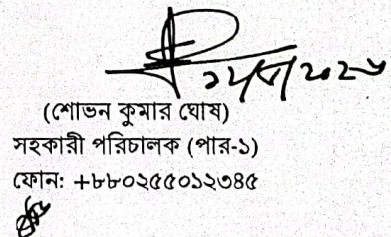 (শোভন কুমার ঘোষ)
সহকারী পরিচালক (পার-১)
ফোন: +৮৮০২৫৫০১২৩৪৫